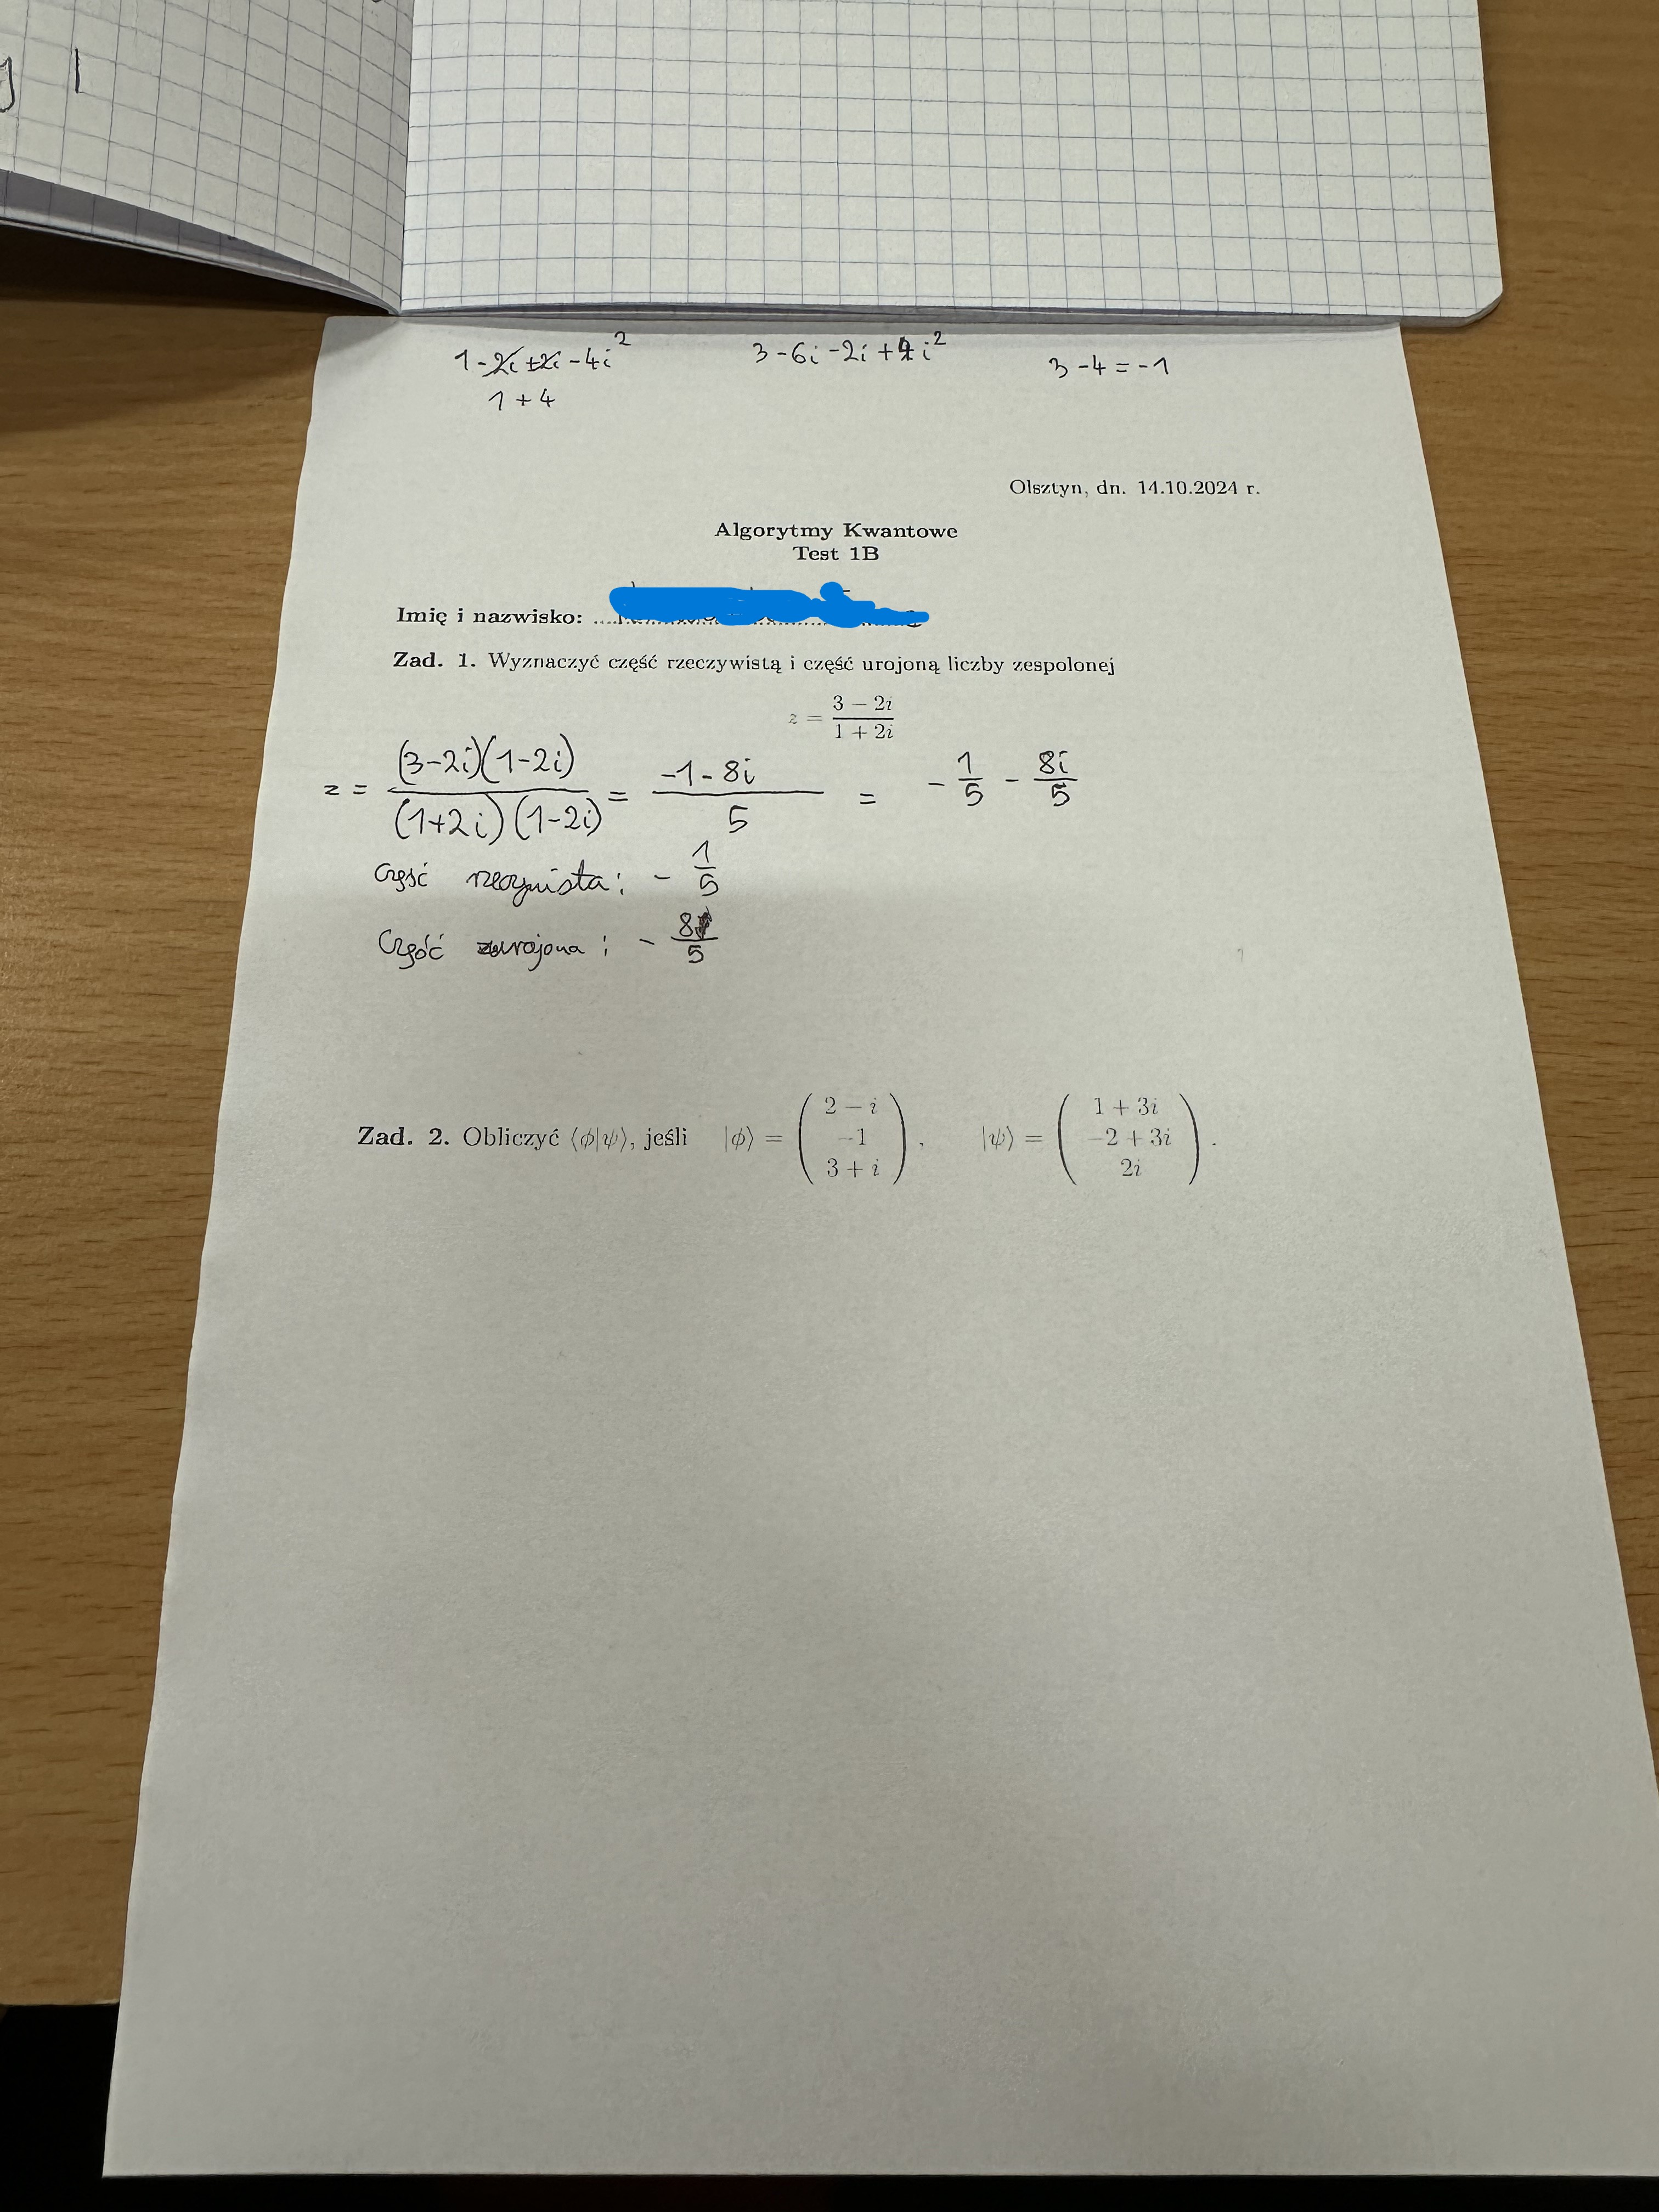 y 1
1-2i+2i-4i²   3-6i-2i+4i²   3-4=-1
1+4
Olsztyn, dn. 14.10.2024 r.
Algorytmy Kwantowe
Test 1B
Imię i nazwisko:
Zad. 1. Wyznaczyć część rzeczywistą i część urojoną liczby zespolonej
z = (3 − 2i)/(1 + 2i)
z = (3-2i)(1-2i)/(1+2i)(1-2i) = (-1-8i)/5 = -1/5 - 8i/5
część rzeczywista: -1/5
Część urojona: -8/5
Zad. 2. Obliczyć ⟨ϕ|ψ⟩, jeśli |ϕ⟩ = (2 − i, −1, 3 + i), |ψ⟩ = (1 + 3i, −2 + 3i, 2i).